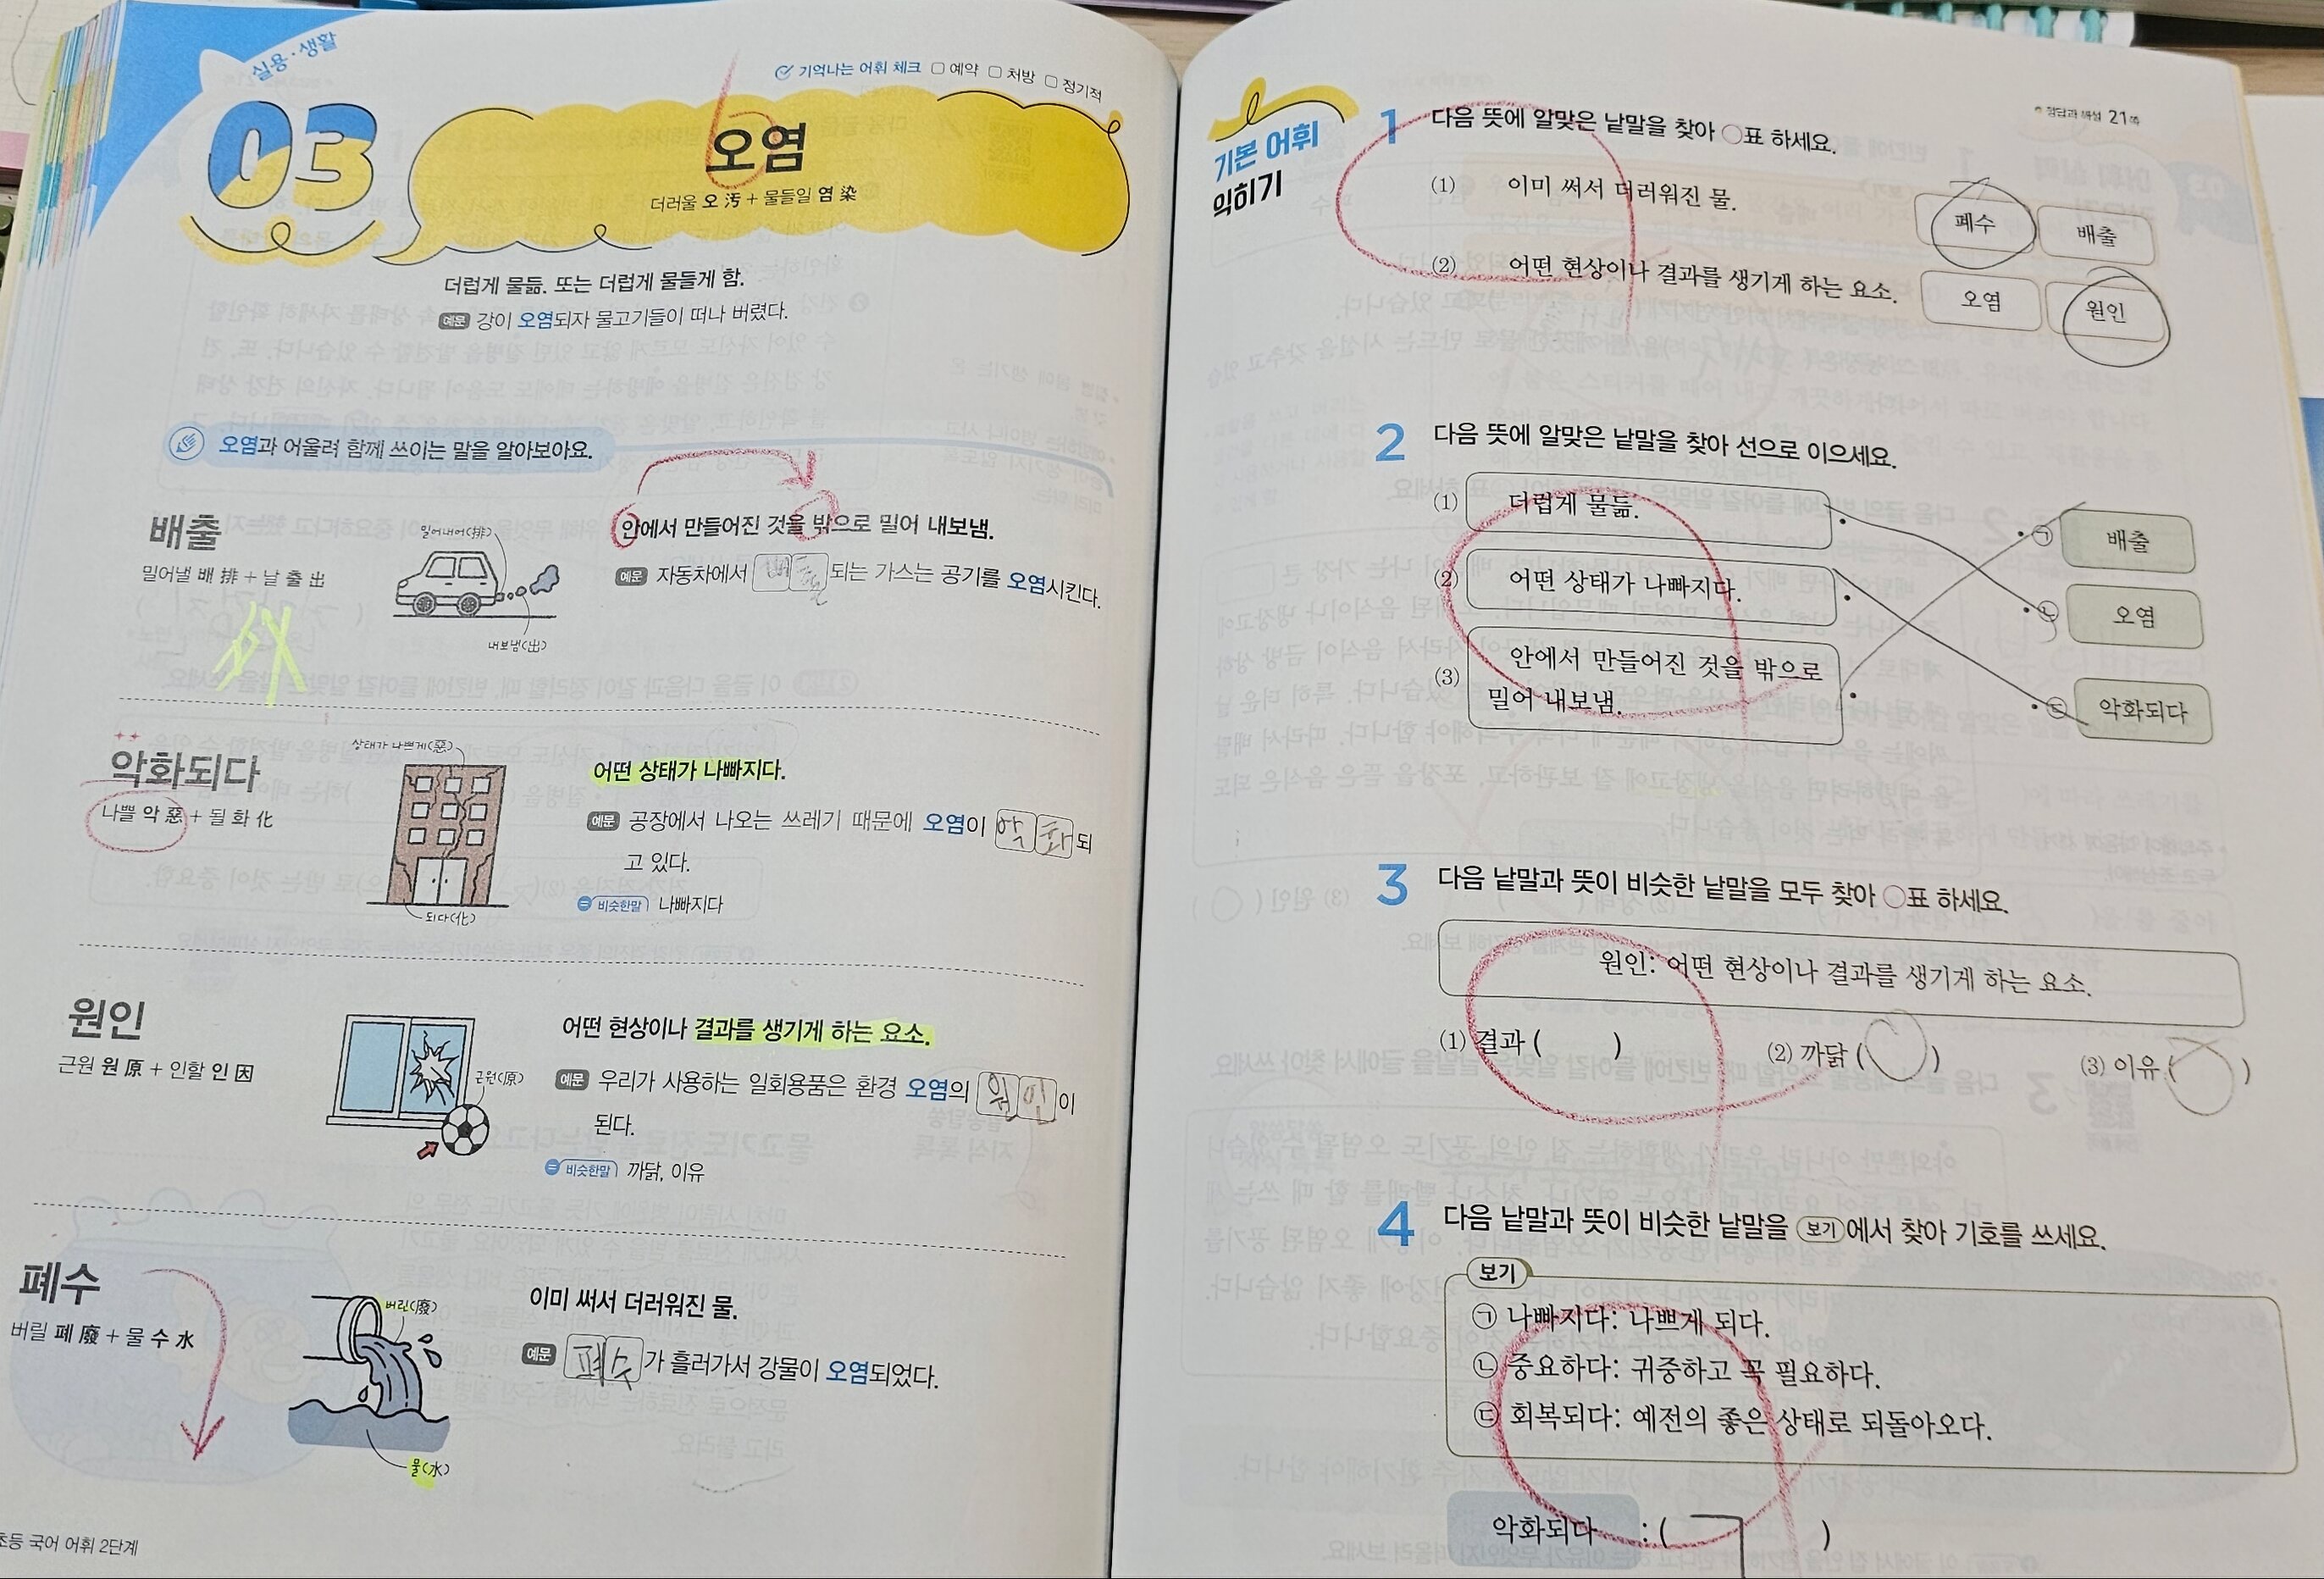 실용·생활
03
기억나는 어휘 체크 예약 처방 정기적
오염
더러울 오 汚 + 물들일 염 染
더럽게 물듦. 또는 더럽게 물들게 함.
예문 강이 오염되자 물고기들이 떠나 버렸다.
오염과 어울려 함께 쓰이는 말을 알아보아요.
배출
밀어낼 배 排 + 날 출 出
밀어내어(排)
내보냄(出)
안에서 만들어진 것을 밖으로 밀어 내보냄.
예문 자동차에서 배출되는 가스는 공기를 오염시킨다.
악화되다
나쁠 악 惡 + 될 화 化
상태가 나쁘게(惡)
되다(化)
어떤 상태가 나빠지다.
예문 공장에서 나오는 쓰레기 때문에 오염이 악화되
고 있다.
비슷한말 나빠지다
원인
근원 원 原 + 인할 인 因
근원(原)
어떤 현상이나 결과를 생기게 하는 요소.
예문 우리가 사용하는 일회용품은 환경 오염의 원인이
된다.
비슷한말 까닭, 이유
폐수
버릴 폐 廢 + 물 수 水
버린(廢)
물(水)
이미 써서 더러워진 물.
예문 폐수가 흘러가서 강물이 오염되었다.
초등 국어 어휘 2단계
정답과 해설 21쪽
기본 어휘
익히기
1 다음 뜻에 알맞은 낱말을 찾아 ○표 하세요.
(1) 이미 써서 더러워진 물.
(2) 어떤 현상이나 결과를 생기게 하는 요소.
폐수 배출
오염 원인
2 다음 뜻에 알맞은 낱말을 찾아 선으로 이으세요.
(1) 더럽게 물듦.
(2) 어떤 상태가 나빠지다.
(3) 안에서 만들어진 것을 밖으로
밀어 내보냄.
㉠ 배출
㉡ 오염
㉢ 악화되다
3 다음 낱말과 뜻이 비슷한 낱말을 모두 찾아 ○표 하세요.
원인: 어떤 현상이나 결과를 생기게 하는 요소.
(1) 결과 ( ) (2) 까닭 (○) (3) 이유 (○)
4 다음 낱말과 뜻이 비슷한 낱말을 보기에서 찾아 기호를 쓰세요.
보기
㉠ 나빠지다: 나쁘게 되다.
㉡ 중요하다: 귀중하고 꼭 필요하다.
㉢ 회복되다: 예전의 좋은 상태로 되돌아오다.
악화되다 : ( ㄱ )